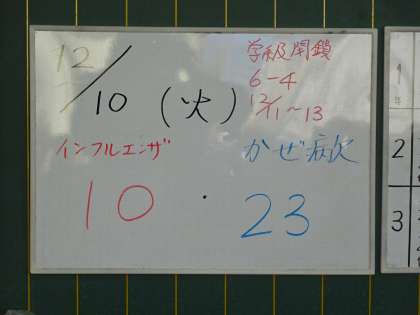 12/10(火)
学級閉鎖
6-4
12/11~13
インフルエンザ
かぜ病欠
10・23
1
年
2
3